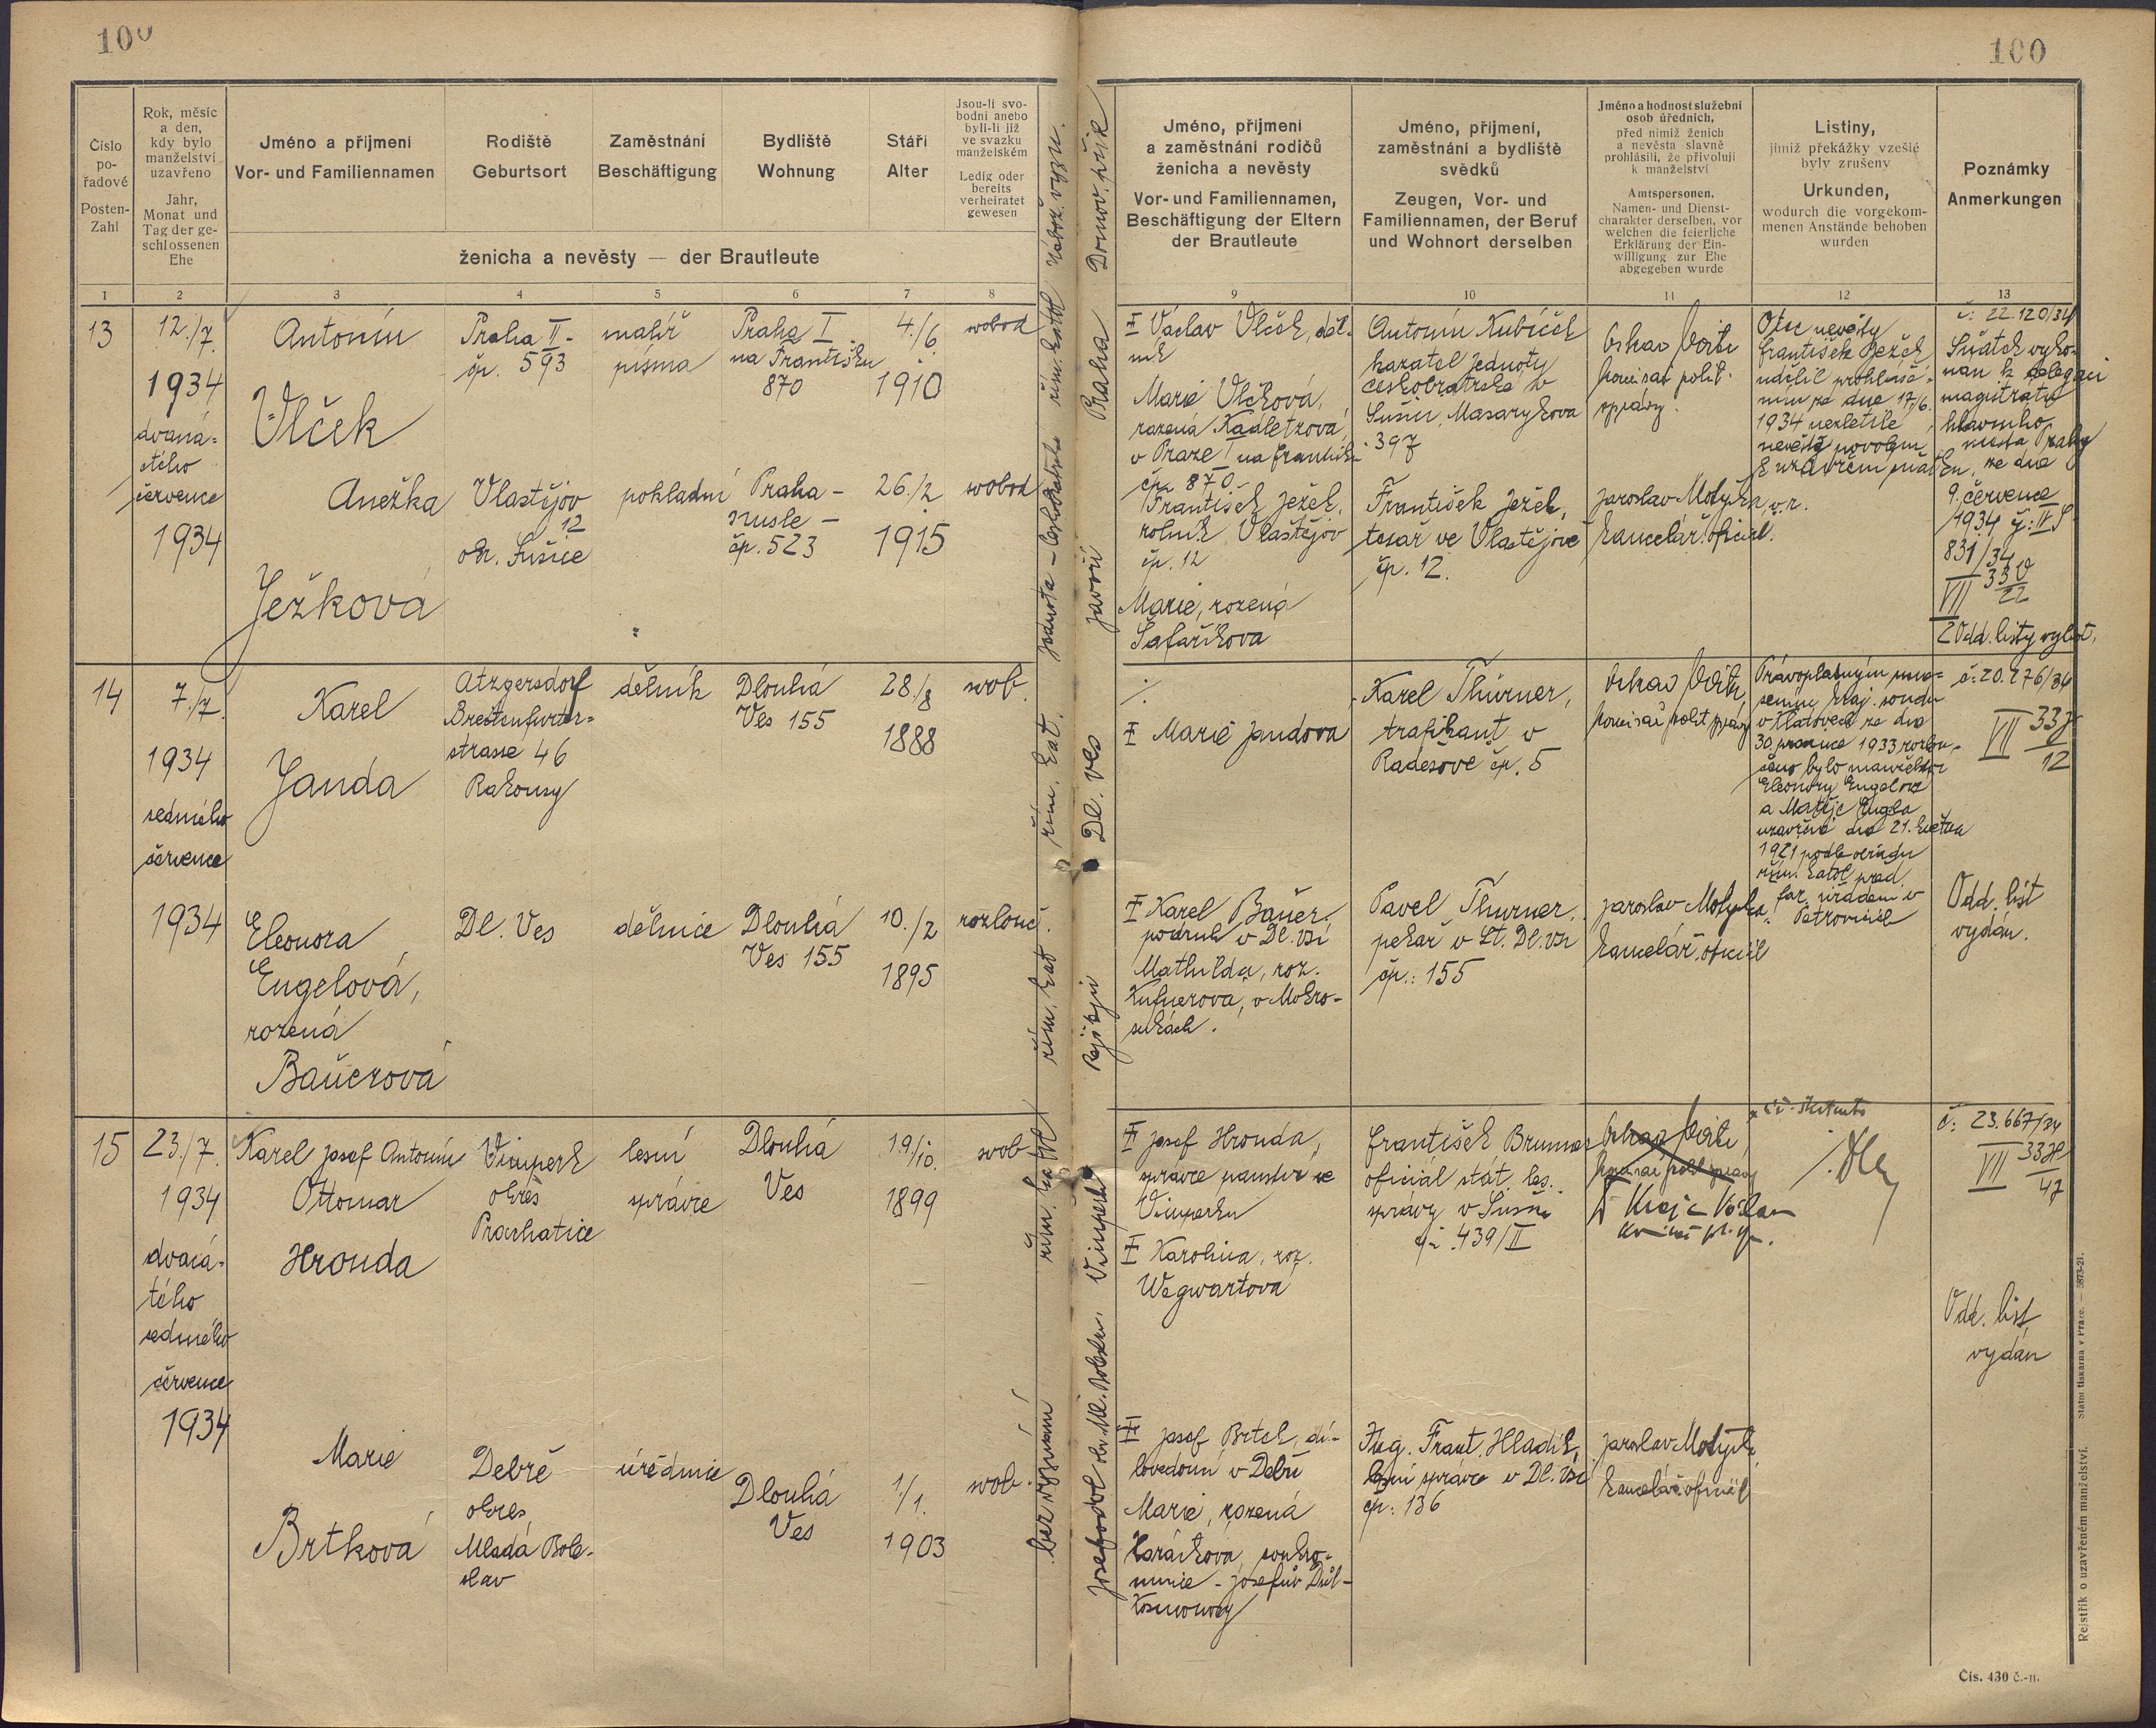 100
100
Číslo
po-
řadové
Posten-
Zahl
Rok, měsíc
a den,
kdy bylo
manželství
uzavřeno
Jahr,
Monat und
Tag der ge-
schlossenen
Ehe
Jméno a příjmení
Vor- und Familiennamen
Rodiště
Geburtsort
Zaměstnání
Beschäftigung
Bydliště
Wohnung
Stáří
Alter
Jsou-li svo-
bodni anebo
byli-li již
ve svazku
manželském
Ledig oder
bereits
verheiratet
gewesen
ženicha a nevěsty — der Brautleute
Jméno, příjmení
a zaměstnání rodičů
ženicha a nevěsty
Vor- und Familiennamen,
Beschäftigung der Eltern
der Brautleute
Jméno, příjmení,
zaměstnání a bydliště
svědků
Zeugen, Vor- und
Familiennamen, der Beruf
und Wohnort derselben
Jméno a hodnost služební
osob úředních,
před nimiž ženich
a nevěsta slavně
prohlásili, že přivolují
k manželství
Amtspersonen,
Namen- und Dienst-
charakter derselben, vor
welchen die feierliche
Erklärung der Ein-
willigung zur Ehe
abgegeben wurde
Listiny,
jimiž překážky vzešlé
byly zrušeny
Urkunden,
wodurch die vorgekom-
menen Anstände behoben
wurden
Poznámky
Anmerkungen
1 2 3 4 5 6 7 8 9 10 11 12 13
Nábož. vyzn.
Domov. přísl.
13
12./7.
1934
dvaná-
ctého
července
1934
Antonín
Vlček
Praha II-
čp. 593
malíř
písma
Praha I-
na Františku
870
4/6
1910
svobod
Anežka
Ježková
Vlastějov
12
okr. Sušice
pokladní
Praha-
Nusle-
čp. 523
26./2
1915
svobod
řím. katol
Jednota-českobratrská
Praha
Javoří
Ŧ Václav Vlček, děl-
ník
Marie Vlčková,
rozená Kadletzová
v Praze I na Františku
čp. 870
František Ježek,
rolník, Vlastějov
čp. 12
Marie, rozená
Šafaříkova
Antonín Kubíček
kazatel Jednoty
českobratrské v
Sušici, Masarykova
397
František Ježek,
tesař ve Vlastějově
čp. 12.
komisař polit.
správy.
Jaroslav Motyčka, v.r.
kancelář. oficiál.
Otec nevěsty
František Ježek
udělil prohláše-
ním ze dne 17/6.
1934 nezletilé
nevěstě povolení
k uzavření
č: 22.120/34
Sňatek vyko-
nán k delegaci
magistrátu
hlavního
města Prahy
ze dne
9. července
1934 č: II S
831/34
VII 330/22
2 Odd. listy vyhot.
14
7./7.
1934
sedmého
července
1934
Karel
Janda
Atzgersdorf
Breitenfurter-
strasse 46
Rakousy
dělník
Dlouhá
Ves 155
28./8
1888
svob.
Eleonora
Engelová,
rozená
Bauerová
Dl. Ves
dělnice
Dlouhá
Ves 155
10./2
1895
rozlouč.
řím. kat.
řím. kat
Dl. Ves
Rejštejn
Ŧ Marie Jandova
Ŧ Karel Bauer,
podruh v Dl. Vsi
Mathilda, roz.
Kufnerova, v Mokro-
sukách.
Karel Thürner,
trafikant v
Radešově čp. 5
Pavel Thurner,
pekař v Dl. Vsi
čp.: 155
komisař polit správy
Jaroslav Motyčka
kancelář. oficiál
Právoplatným usne-
sením kraj. soudu
v Klatovech ze dne
30. prosince 1933 rozlou-
čeno bylo manželství
Eleonory Engelové
a Matěje Engla
uzavřené dne 21. května
1921 podle obřadu
řím. katol. před
far. úřadem v
Petrovicích
č: 20.276/34
VII 33/12
Odd. list
vydán.
15
23./7.
1934
dvacá-
tého
sedmého
července
1934
Karel Josef Antonín
Ottomar
Hronda
Vimperk
okres
Prachatice
lesní
správce
Dlouhá
Ves
19./10.
1899
svob
Marie
Brtková
Debře
okres
Mladá Bole-
slav
úřednice
Dlouhá
Ves
1./1.
1903
svob.
řím. katol
bez vyznání
Vimperk
Josefodol okr. Ml. Boleslav.
Ŧ Josef Hronda,
správce panství ve
Vimperku
Ŧ Karolina, roz.
Wegwartova
Ŧ Josef Brtek, dí-
lovedoucí v Debři
Marie, rozená
soukro-
mnice - Josefův Důl-
Kosmonosy
František Brunner
oficiál stát. les.
správy v Sušici
čp. 439/II
Ing. Frant. Hladík,
lesní správce v Dl. Vsi
čp: 136
Jaroslav Motyčka
kancelář. oficiál
č: 23.667/34
VII 33/47
Odd. list
vydán
Rejstřík o uzavřeném manželství. Státní tiskárna v Praze. — 5823-21.
Čís. 430 č.-n.